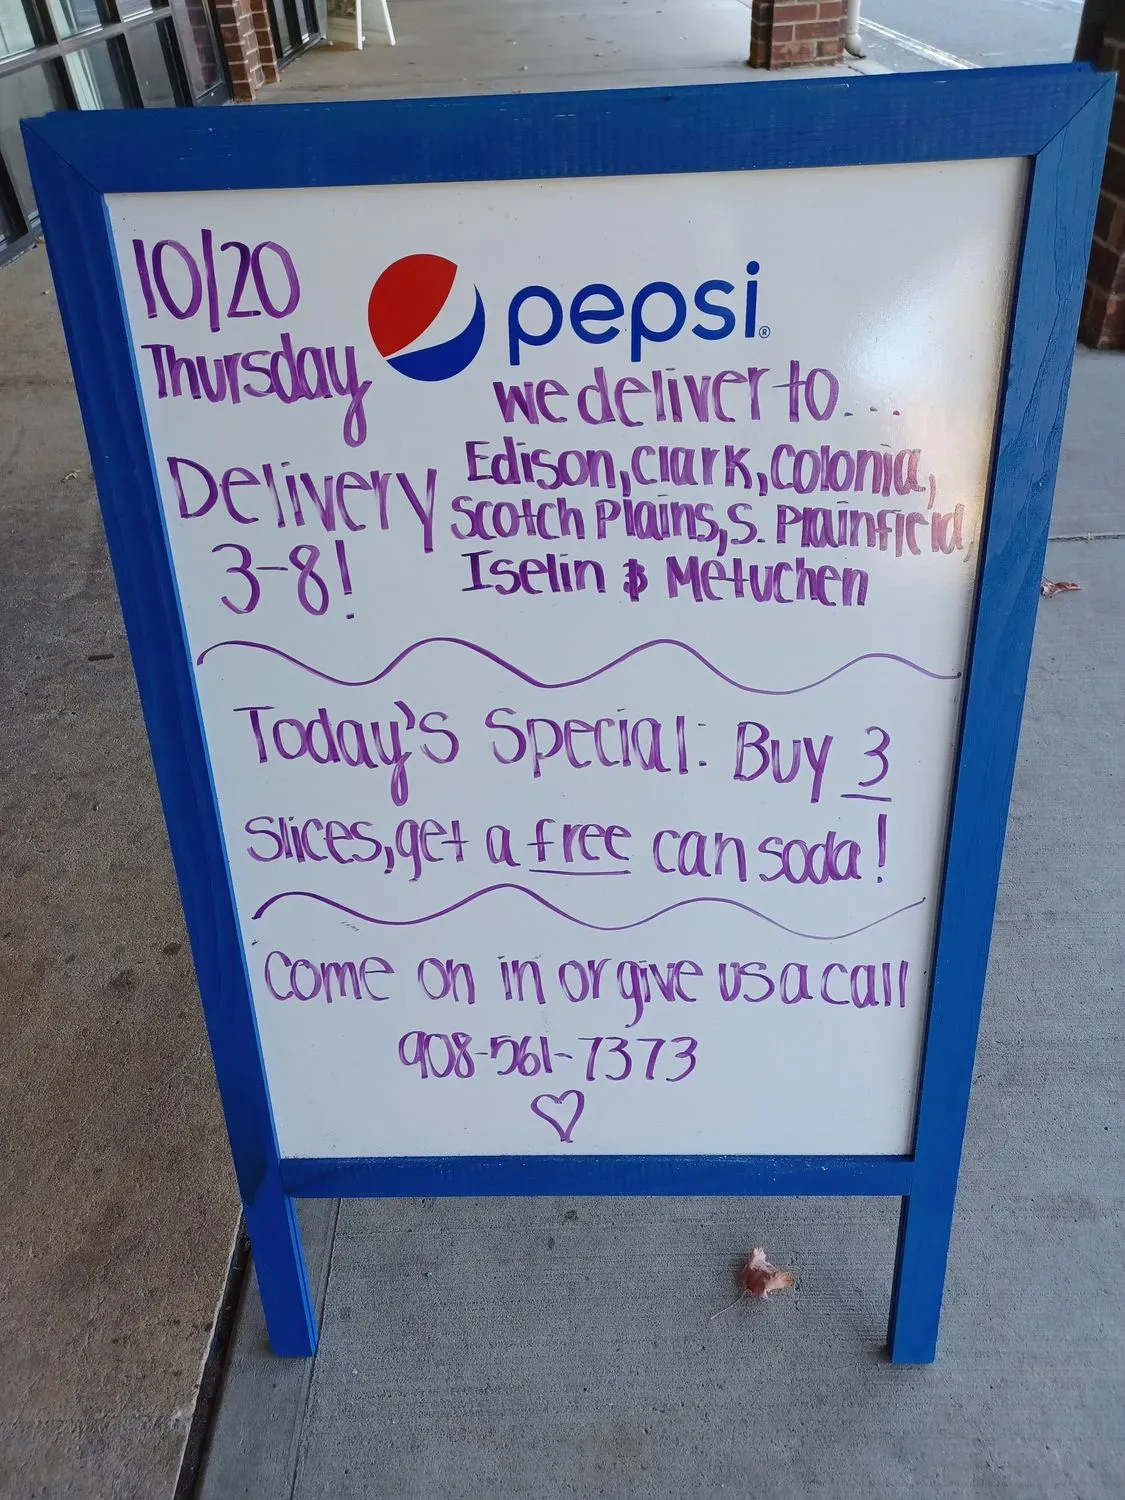 10/20
Thursday
pepsi®
we deliver to....
Edison, Clark, Colonia,
Scotch Plains, S. Plainfield,
Iselin & Metuchen
Delivery
3-8!
Today's Special: Buy 3
slices, get a free can soda!
Come on in or give us a call
908-561-7373